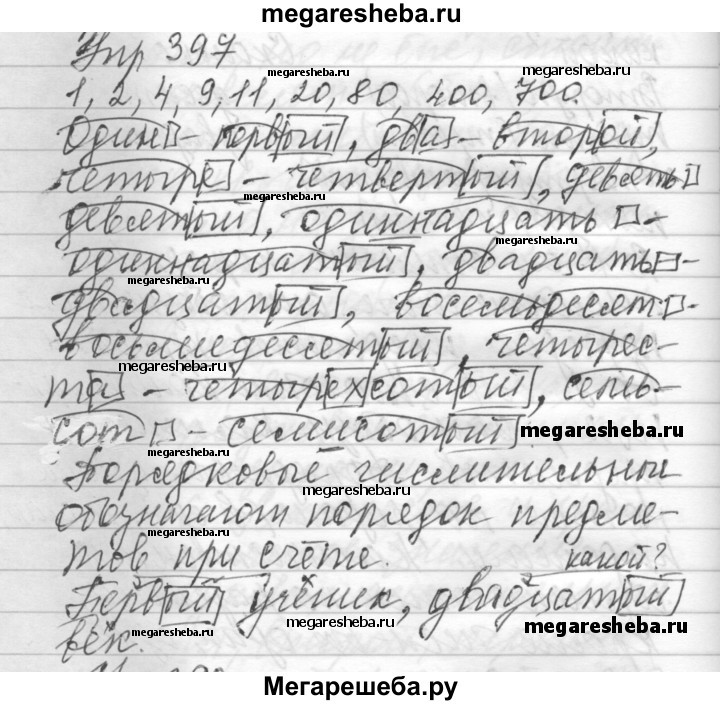 megaresheba.ru
Упр 397
megaresheba.ru megaresheba.ru
1, 2, 4, 9, 11, 20, 80, 400, 700.
megaresheba.ru
Один - первый, два - второй,
четыре - четвертый, девять
девятый, одиннадцать -
megaresheba.ru
одиннадцатый, двадцать -
megaresheba.ru
двадцатый, восемьдесят -
восьмидесятый, четырес-
megaresheba.ru
та - четырехсотый, семь-
сот - семисотый megaresheba.ru
megaresheba.ru
Порядковые числительные
megaresheba.ru
обозначают порядок предме-
megaresheba.ru
тов при счёте. какой?
Первый ученик, двадцатый
megaresheba.ru megaresheba.ru megaresheba.ru
век.
Мегарешеба.ру